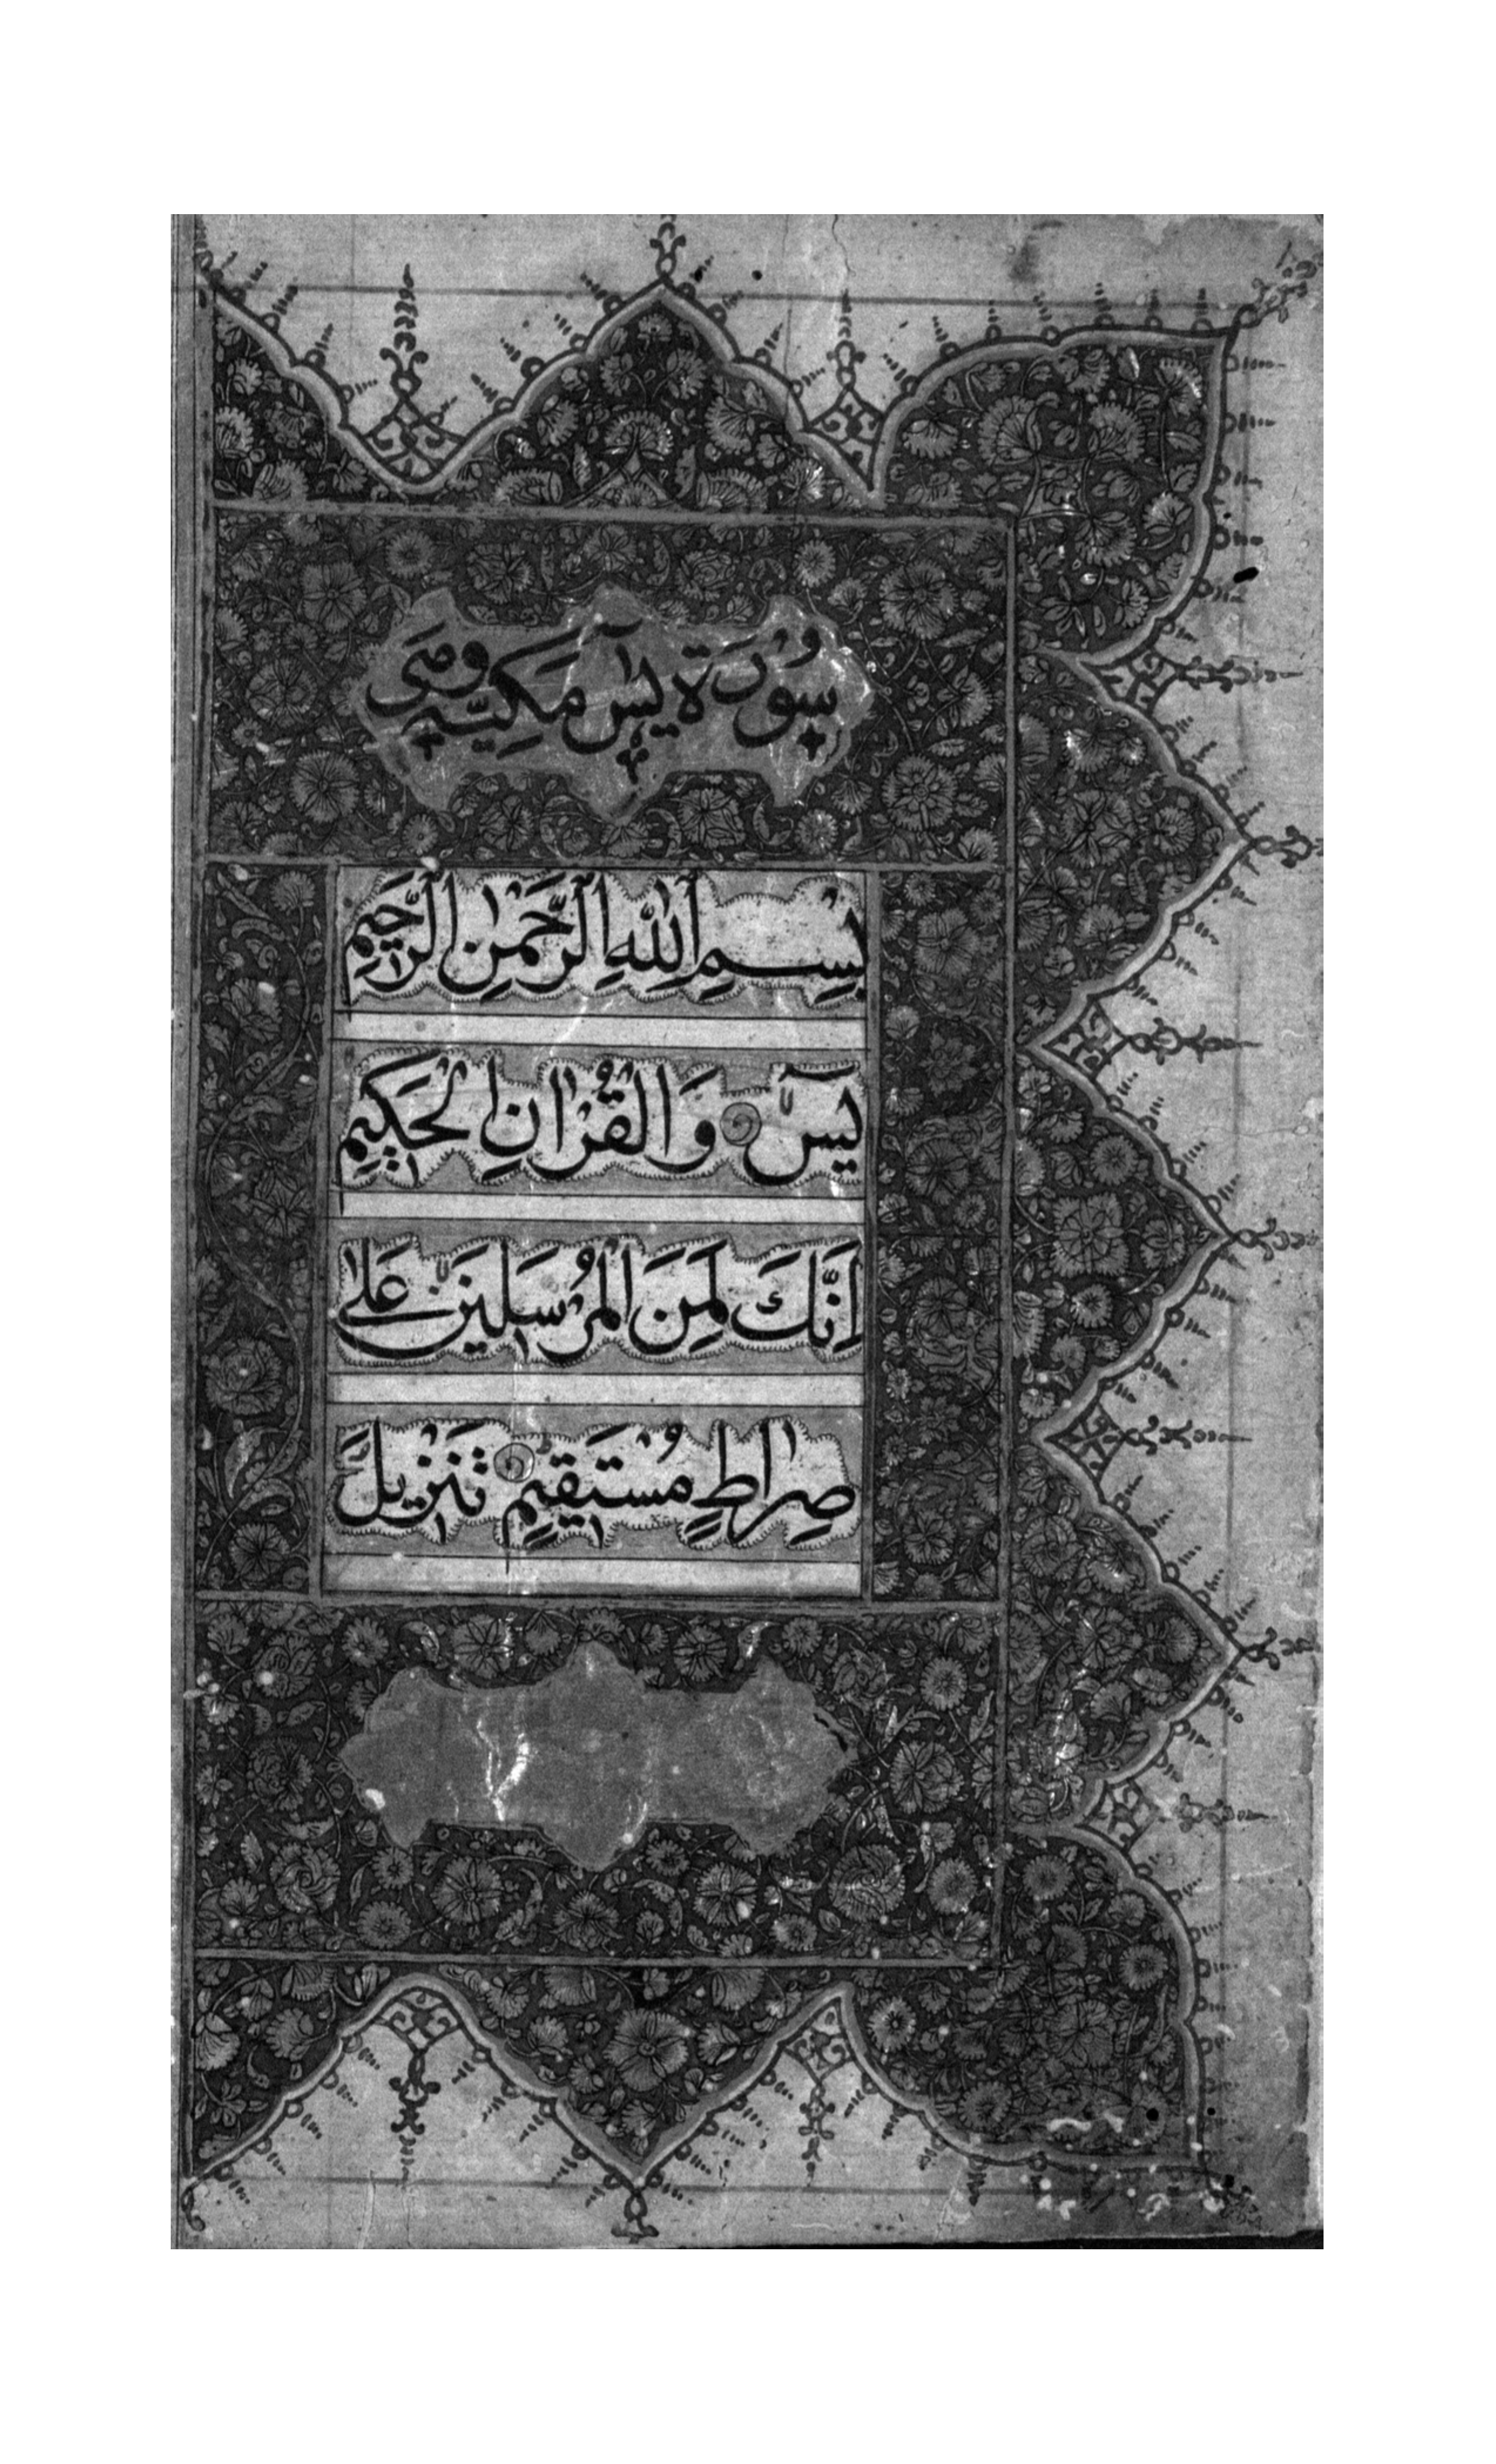 سُورَة يٰسٓ مَكِيَّة وهي
بِسْمِ اللّٰهِ الرَّحْمٰنِ الرَّحِيْمِ
يٰسٓ وَالْقُرْاٰنِ الْحَكِيْمِ
اِنَّكَ لَمِنَ الْمُرْسَلِيْنَ عَلٰى
صِرَاطٍ مُسْتَقِيْمٍ تَنْزِيْلَ